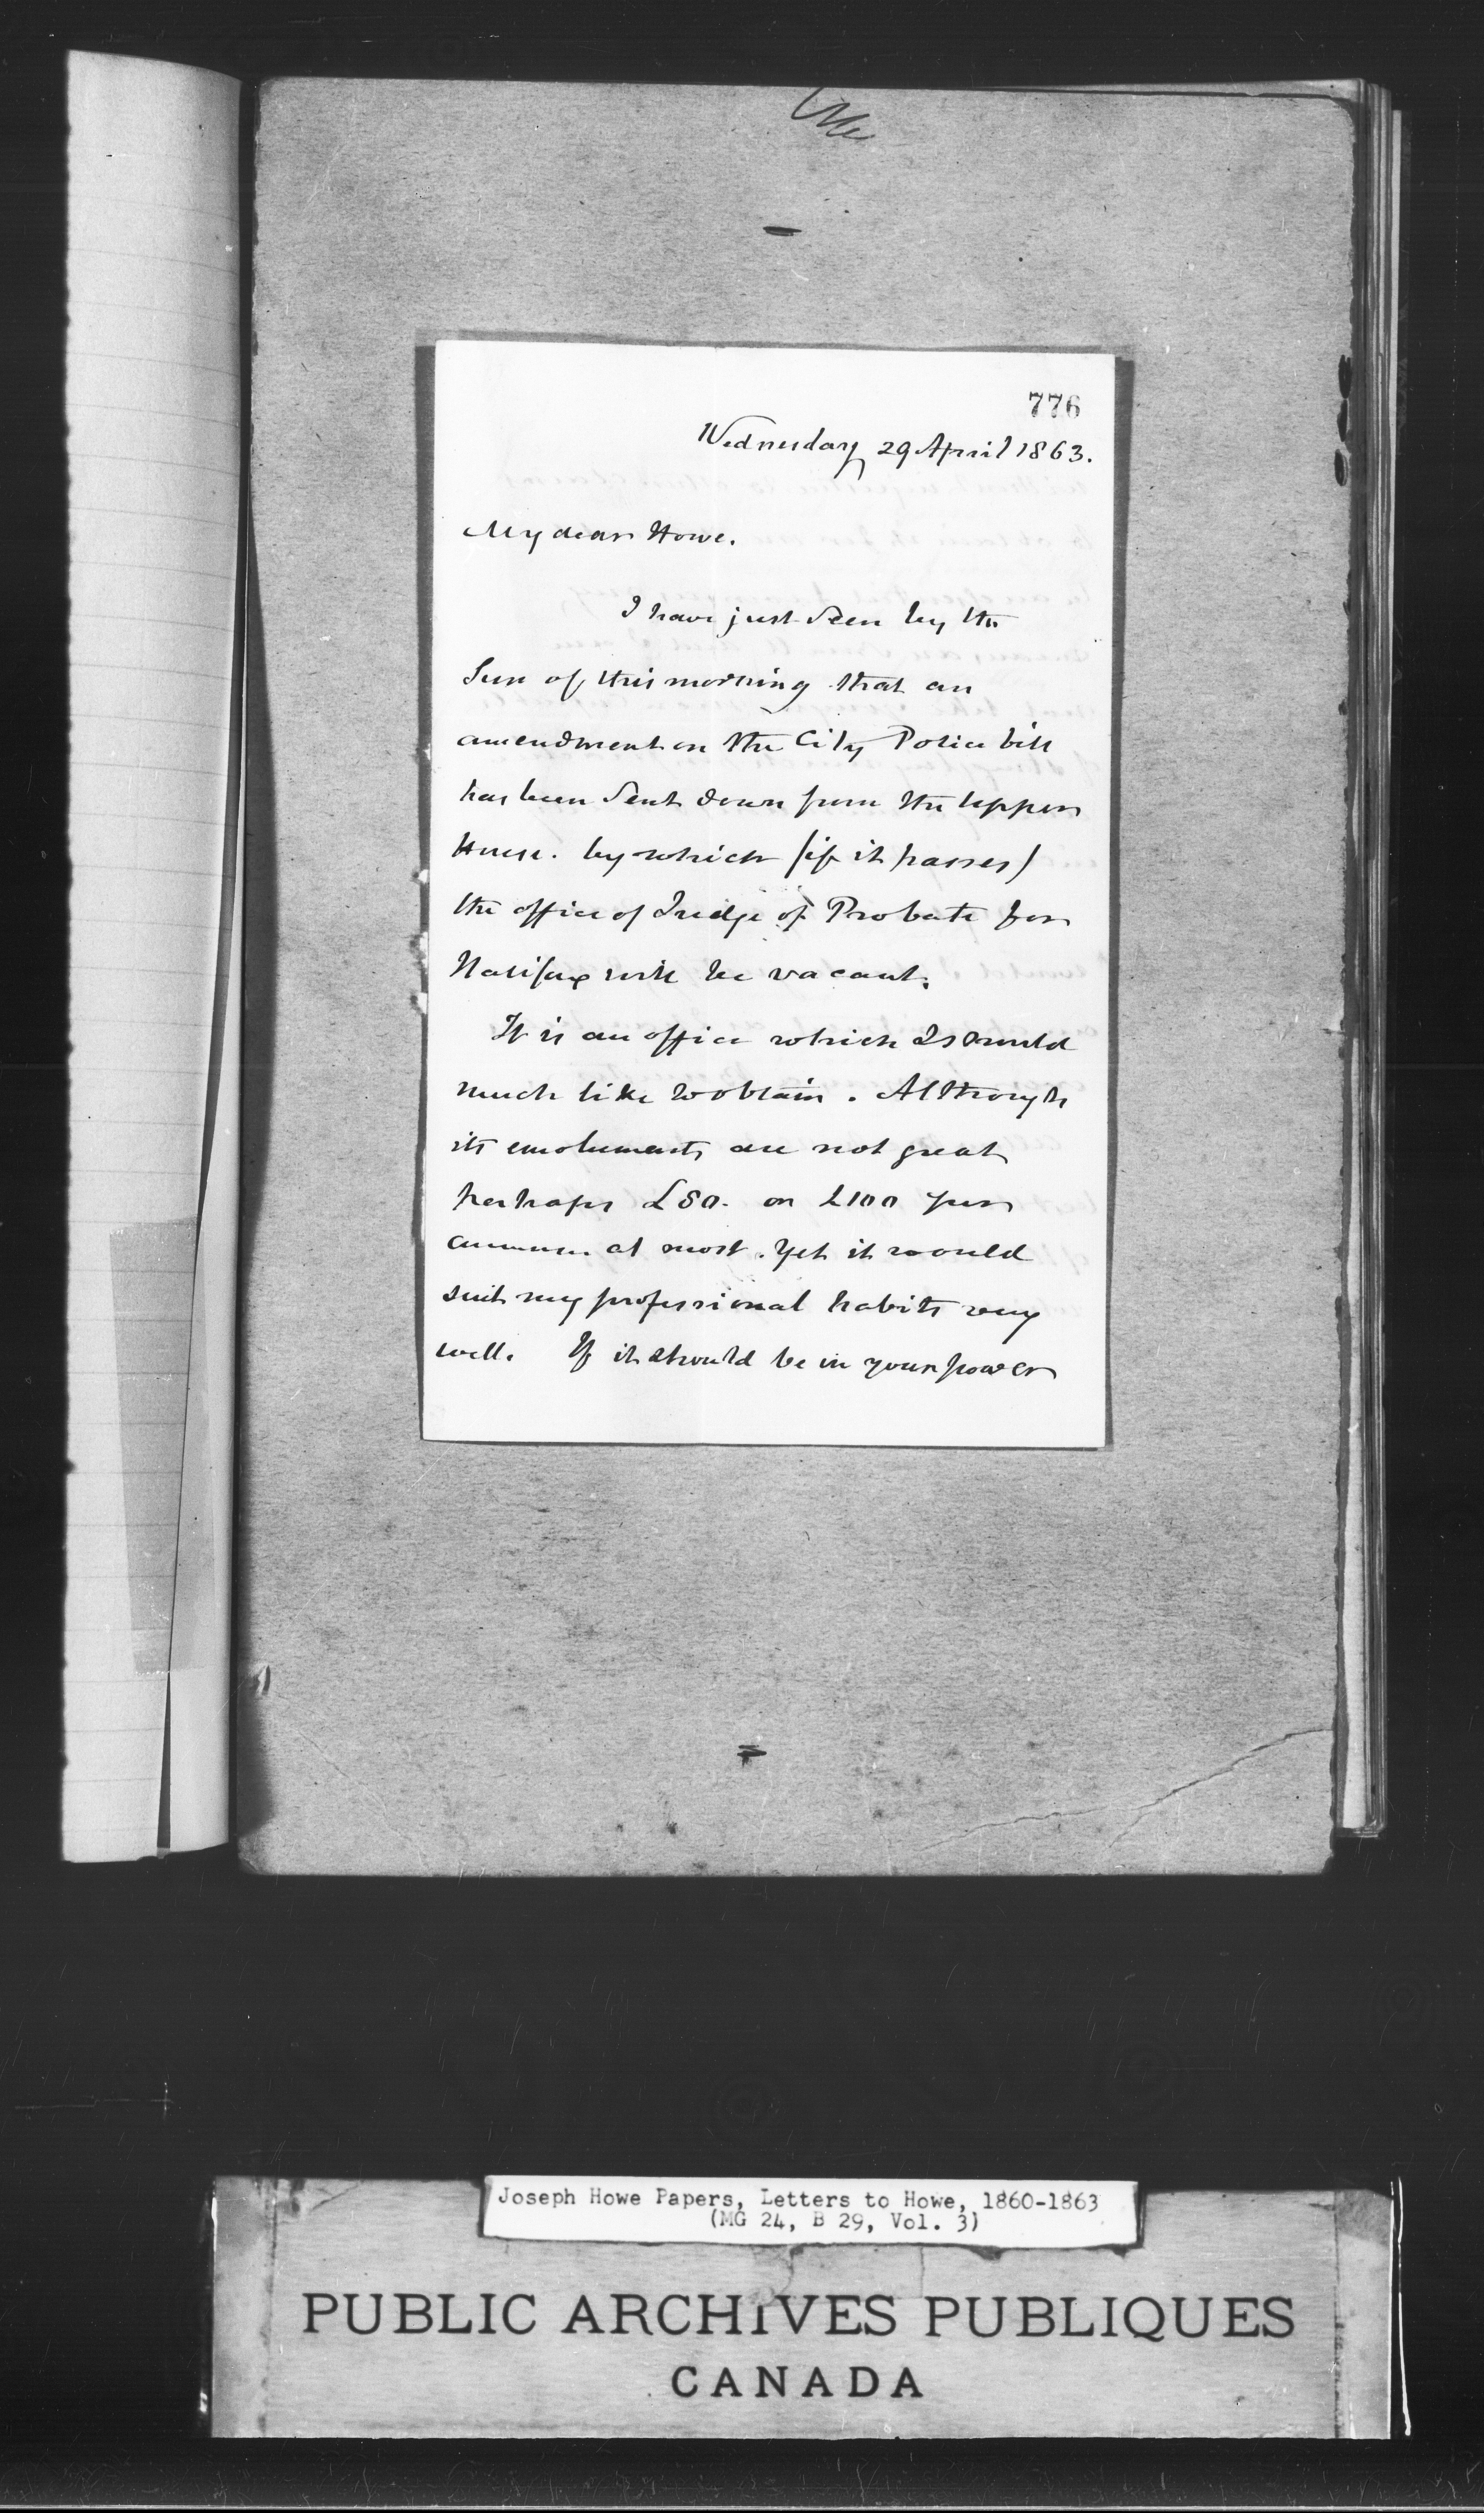 776
Wednesday 29 April 1863.
My dear Howe.
I have just seen by the
Sun of this morning that an
amendment on the City Police bill
has been sent down from the Upper
House. by which (if it passes)
the office of Judge of Probate for
Halifax will be vacant.
It is an office which I should
much like to obtain. Although
its emoluments are not great
perhaps £80. or £100 per
annum at most. Yet it would
suit my professional habits very
well. If it should be in your power
Joseph Howe Papers, Letters to Howe, 1860-1863
(MG 24, B 29, Vol. 3)
PUBLIC ARCHIVES PUBLIQUES
CANADA